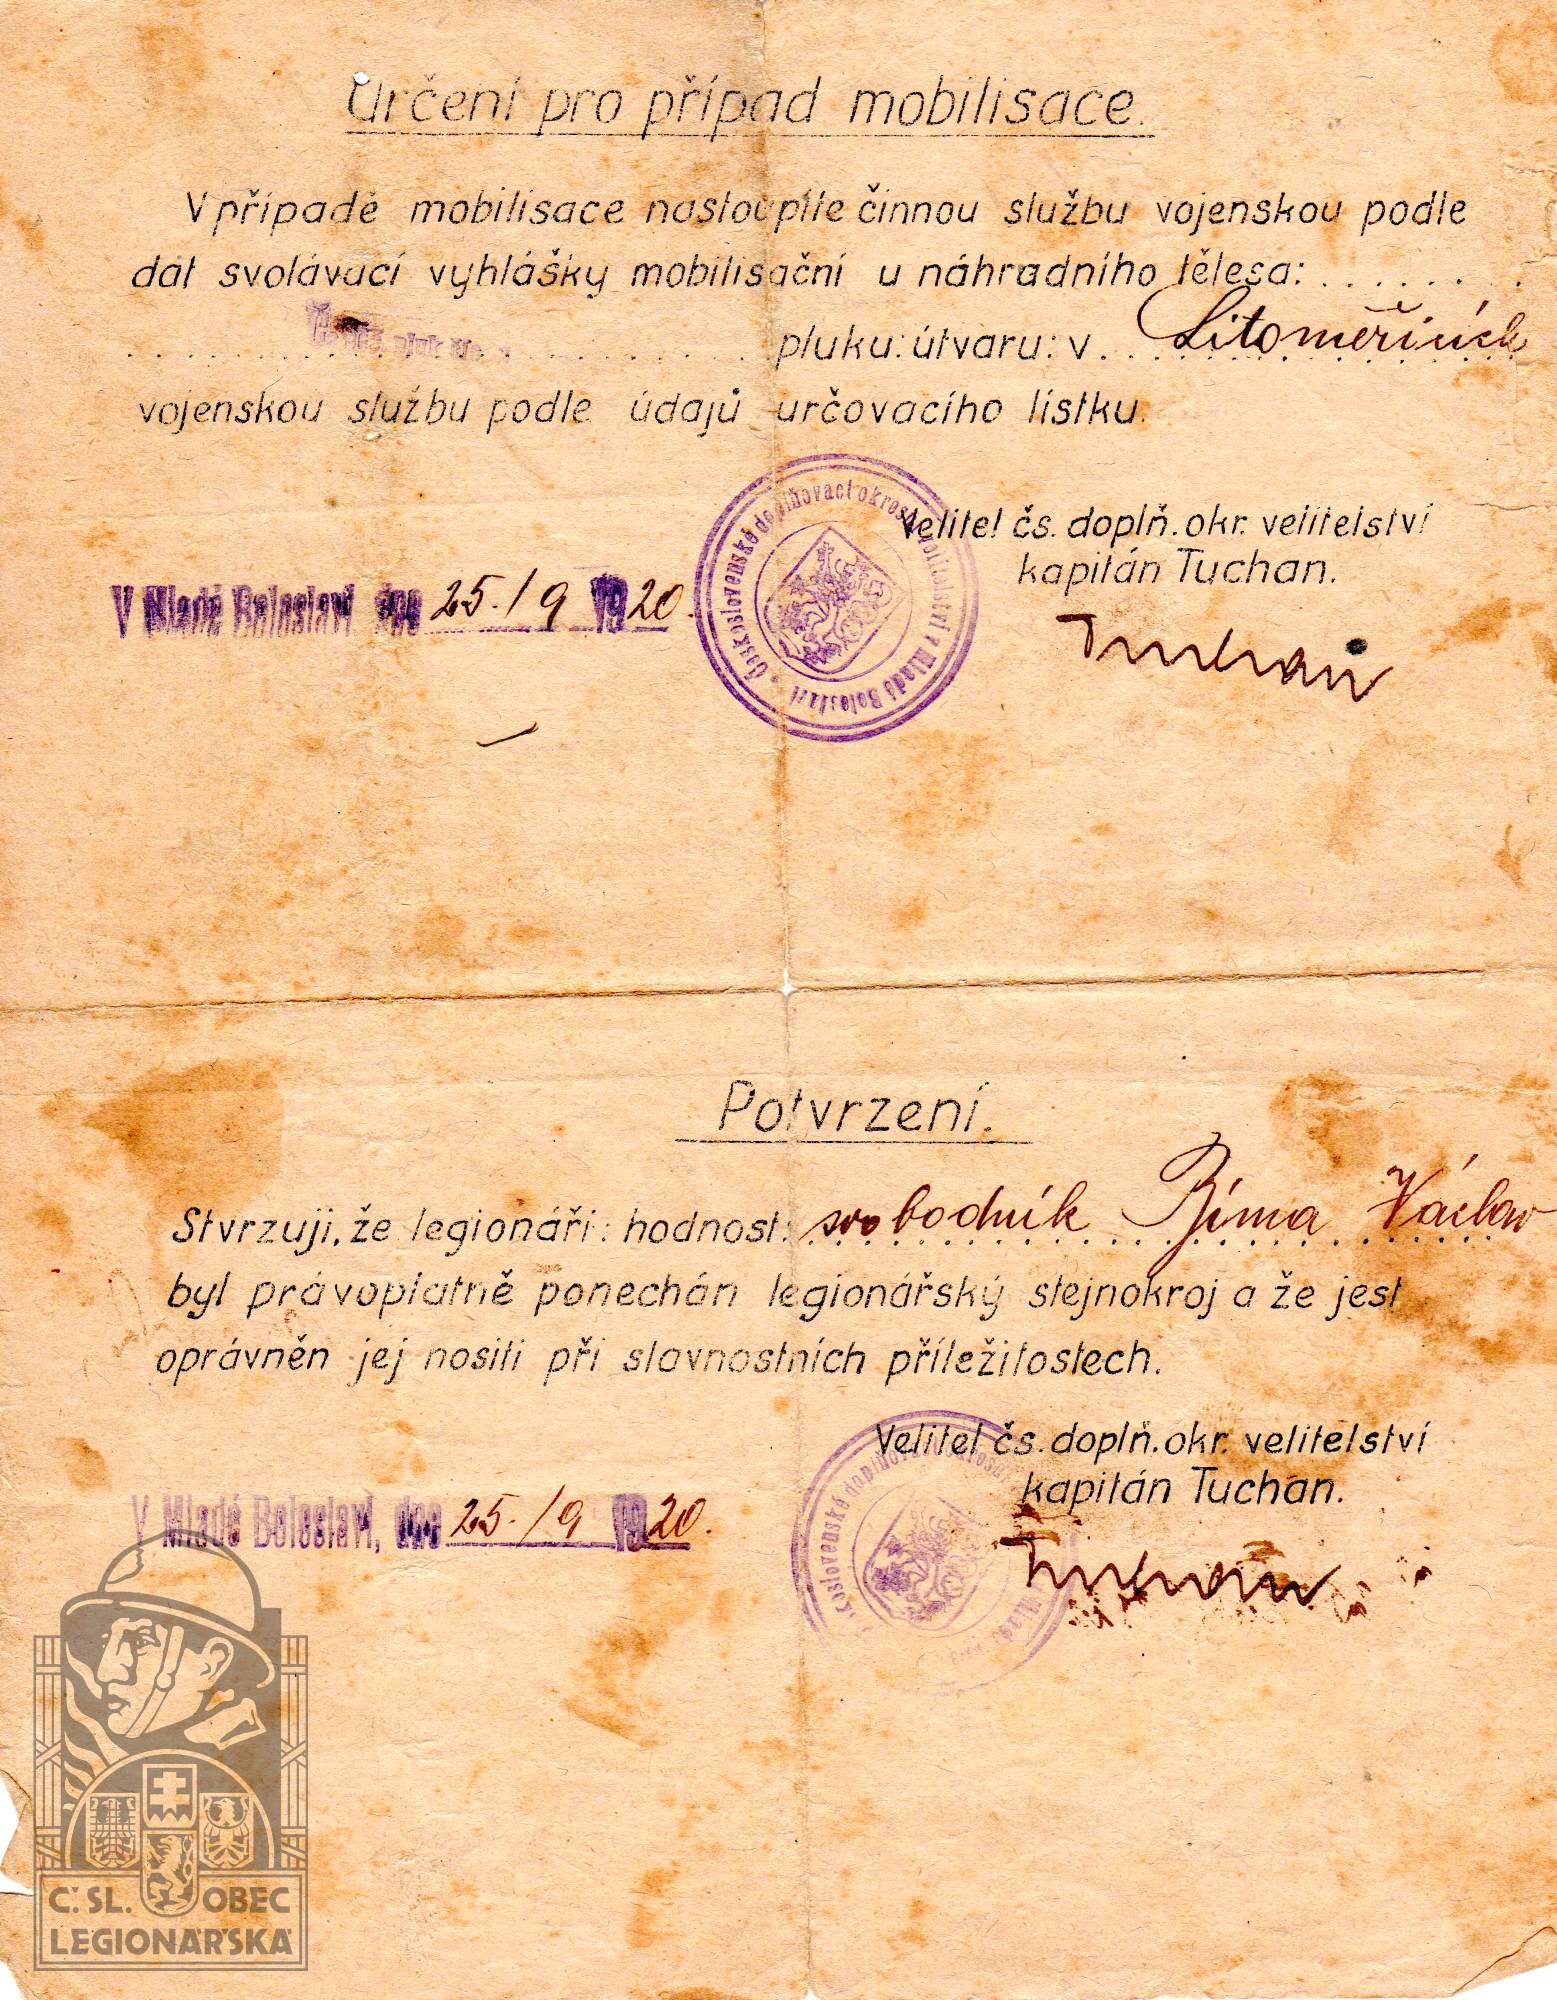 Určení pro případ mobilisace.
V případě mobilisace nastoupíte činnou službu vojenskou podle
dat svolávací vyhlášky mobilisační u náhradního tělesa: . . . . . . .
. . . . . . . . . . . . . . . . pluku: útvaru: v Litoměřicích
vojenskou službu podle údajů určovacího lístku.
Velitel čs. doplň. okr. velitelství
kapitán Tuchan.
V Mladé Boleslavi dne 25./9 1920.
Československé doplňovací okresní velitelství v Mladé Boleslavi
Tuchan
Potvrzení.
Stvrzuji, že legionáři: hodnost: svobodník Říma Václav
byl právoplatně ponechán legionářský stejnokroj a že jest
oprávněn jej nositi při slavnostních příležitostech.
Velitel čs. doplň. okr. velitelství
kapitán Tuchan.
V Mladé Boleslavi, dne 25./9 1920.
Tuchan
Č. SL. OBEC
LEGIONÁŘSKÁ